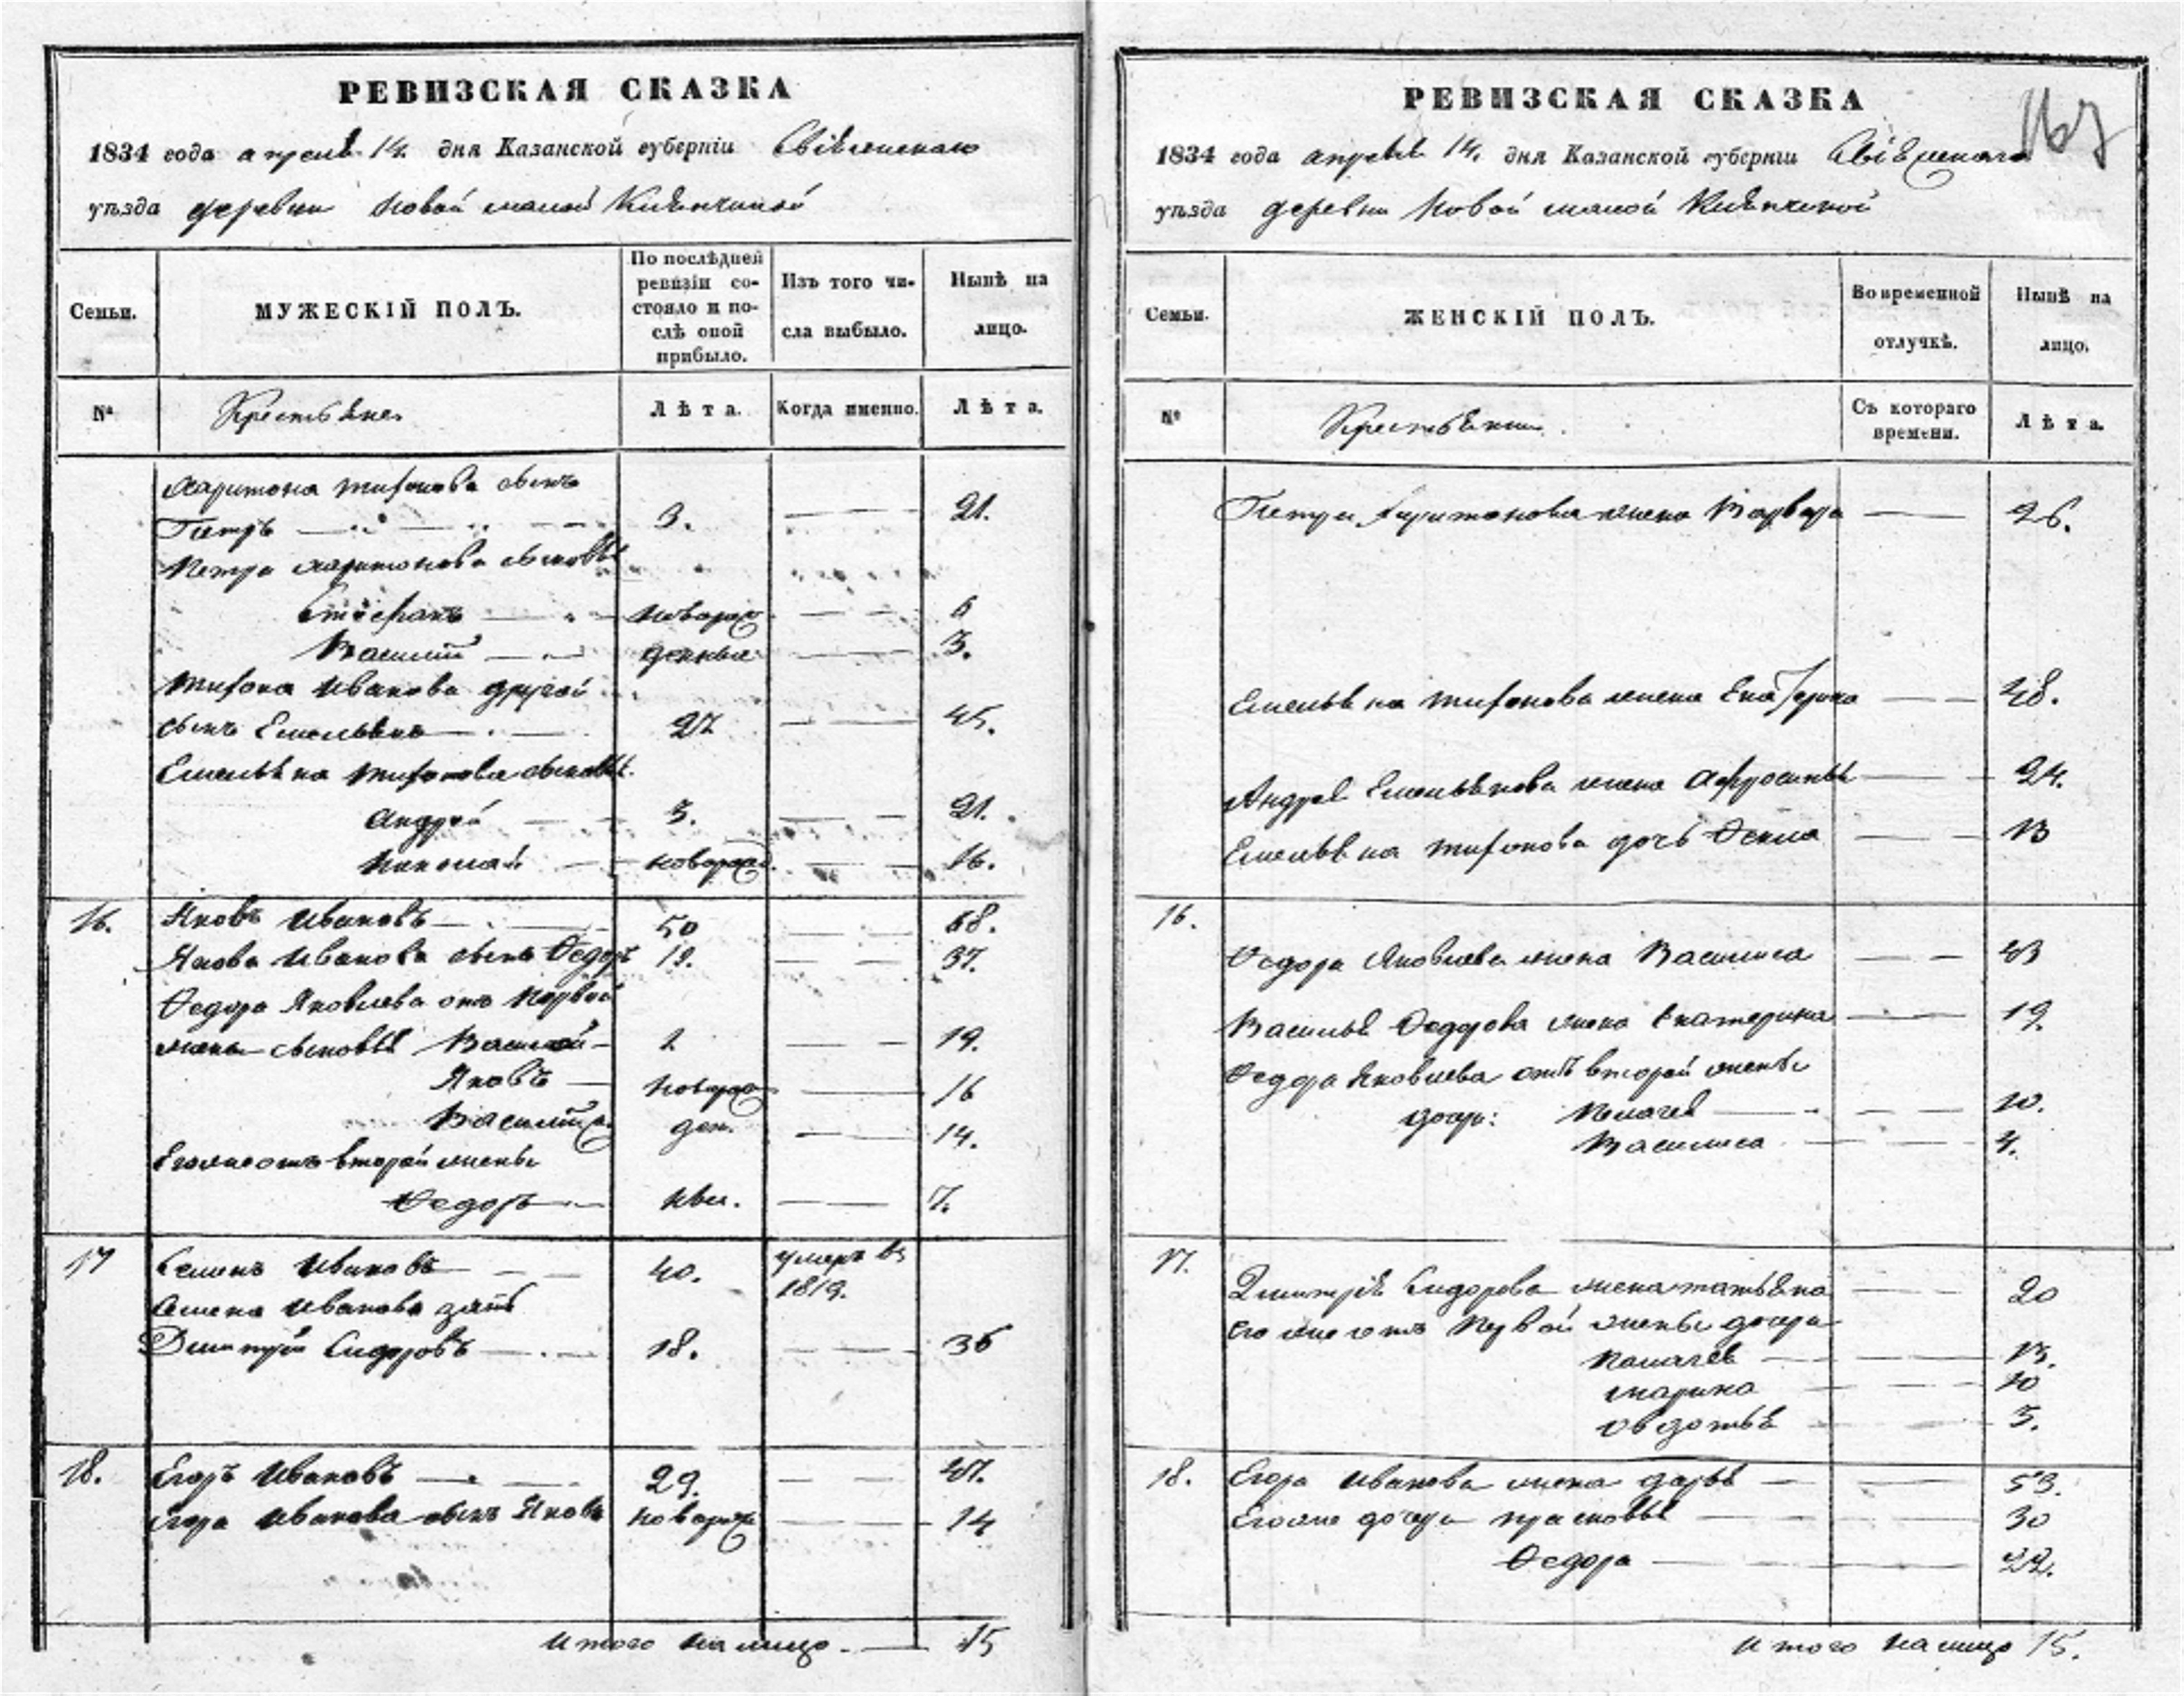 РЕВИЗСКАЯ СКАЗКА
1834 года апреля 14. дня Казанской губерніи Свіяжскаго
уѣзда деревни Новой малой
Семьи. МУЖЕСКІЙ ПОЛЪ. По послѣдней ревизіи состояло и послѣ оной прибыло. Изъ того числа выбыло. Нынѣ на лицо.
№ Крестьяне Лѣта. Когда именно. Лѣта.
Харитона Тифонова сынъ
Петръ 3. 21.
Петра Харитонова сыновья
Степанъ новорож 6
Василій денные 3.
Тифона Иванова другой
сынъ Емельянъ 27 45.
Емельяна Тифонова сыновья.
Андрей 3. 21.
Николай новорож. 16.
16. Яковъ Ивановъ 50 68.
Якова Иванова сынъ Ѳедоръ 19. 37.
Ѳедора Яковлева отъ первой
жены сыновья Василей 1. 19.
Яковъ новорож 16
Василій ден. 14.
Его же отъ второй жены
Ѳедоръ 7.
17 Семенъ Ивановъ 40. умеръ въ 1819.
Семена Иванова зять
Дмитрій Сидоровъ 18. 36
18. Егоръ Ивановъ 29. 47.
Егора Иванова сынъ Яковъ новорож 14
Итого на лицо 15
РЕВИЗСКАЯ СКАЗКА
167
1834 года апреля 14. дня Казанской губерніи Свіяжскаго
уѣзда деревни Новой малой
Семьи. ЖЕНСКІЙ ПОЛЪ. Во временной отлучкѣ. Нынѣ на лицо.
№ Крестьянки. Съ котораго времени. Лѣта.
Петра Харитонова жена Варвара 26.
Емельяна Тифонова жена Екатерина 48.
Андрея Емельянова жена Афросинья 24.
Емельяна Тифонова дочь Ѳекла 13
16.
Ѳедора Яковлева жена Василиса 43
Василья Ѳедорова жена Екатерина 19.
Ѳедора Яковлева отъ второй жены
дочери: Пелагея 10.
Василиса 4.
17. Дмитрія Сидорова жена Татьяна 20
Его же отъ первой жены дочери
Палагея 13.
Марина 10
Овдотья 3.
18. Егора Иванова жена Дарья 53.
Его же дочери Прасковья 30
Ѳедора 22.
Итого на лицо 15.